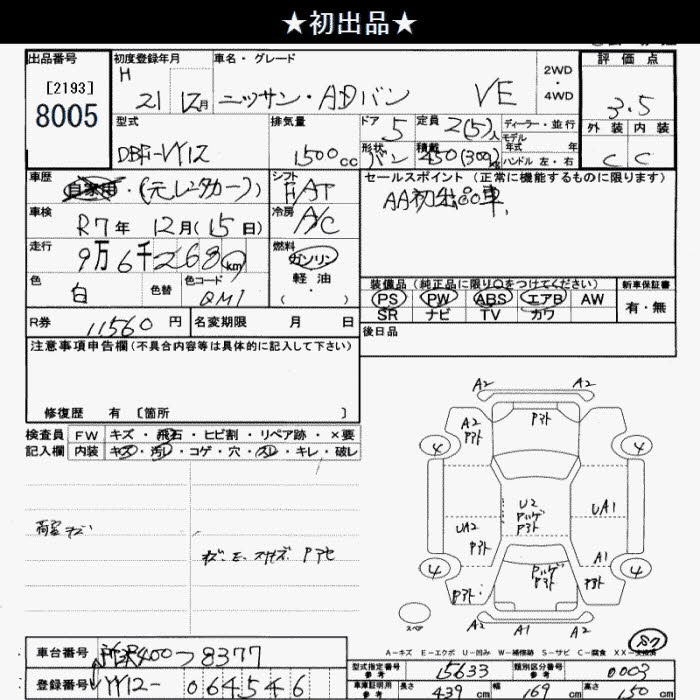 ★初出品★
出品番号
[2193]
8005
初度登録年月
H 21 12月
車名・グレード
ニッサン・ADバン VE
2WD
・
4WD
評価点
3.5
外装 内装
C C
型式
DBF-VY12
排気量
1500cc
ドア
5
形状
バン
定員
2(5)人
積載
450(300)kg
ディーラー・並行
モデル
年式 年
ハンドル 左・右
車歴
自家用・(元レンタカー)
シフト
FAT
セールスポイント (正常に機能するものに限ります)
AA初出品車、
車検
R7年 12月(15日)
冷房
A/C
走行
9万6千268km
燃料
ガソリン
軽油
( ・ )
色
白
色替
色コード
QM1
装備品(純正品に限り○をつけてください)
PS PW ABS エアB AW
SR ナビ TV カワ
新車保証書
有・無
R券 11560円
名変期限 月 日
後日品
注意事項申告欄(不具合内容等は具体的に記入して下さい)
修復歴 有 [箇所 ]
検査員 FW キズ・飛石・ヒビ割・リペア跡・×要
記入欄 内装 キズ・汚レ・コゲ・穴・スレ・キレ・破レ
荷室キズ
A2 A2
A2
Pヌト
Pヌト
4 4
U2
Pハゲ
Pヌト
UA1
UA2
Pヌト
A1
4 4
Pハゲ
Pヌト
Pヌト
Pヌト
A2 A1 A2
スペア
A-キズ E-エクボ U-凹み W-補修跡 S-サビ C-腐食 XX-交換済
57
車台番号
登録番号
400 つ 8377
VY12-064546
型式指定番号
参考
15633
類別区分番号
参考
0003
車庫証明用
参考
長さ 439cm 幅 169cm 高さ 150cm